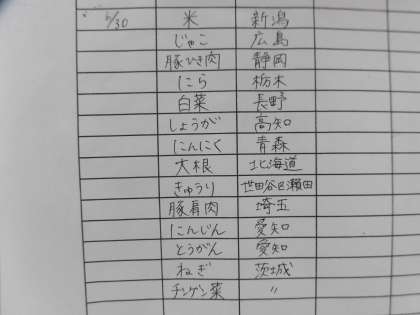 5/30 米 新潟
じゃこ 広島
豚ひき肉 静岡
にら 栃木
白菜 長野
しょうが 高知
にんにく 青森
大根 北海道
きゅうり 世田谷区瀬田
豚肩肉 埼玉
にんじん 愛知
とうがん 愛知
ねぎ 茨城
チンゲン菜 〃